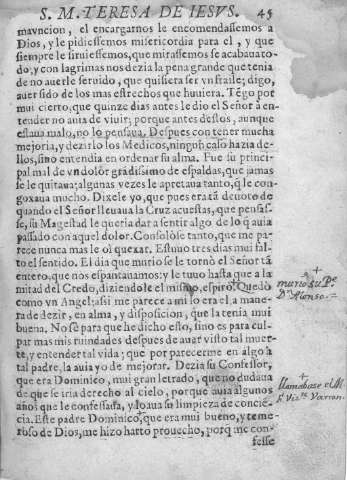 S. M. TERESA DE IESVS. 45
mavncion, el encargarnos le encomendassemos a
Dios, y le pidiessemos misericordia para el, y que
siempre le siruiessemos, que mirassemos se acabaua to-
do; y con lagrimas nos dezia la pena grande que tenia
de no auerle seruido, que quisiera ser vn fraile; digo,
auer sido de los mas estrechos que huuiera. Tẽgo por
mui cierto, que quinze dias antes le dio el Señor à en-
tender no auia de viuir; porque antes destos, aunque
estaua malo, no lo pensaua. Despues con tener mucha
mejoria, y dezirlo los Medicos, ningun caso hazia de-
llos, sino entendia en ordenar su alma. Fue su princi-
pal mal de vn dolor grãdissimo de espaldas, que jamas
se le quitaua; algunas vezes le apretaua tanto, q̃ le con-
goxaua mucho. Dixele yo, que pues era tã deuoto de
quando el Señor lleuaua la Cruz acuestas, que pensas-
se, su Magestad le queria dar a sentir algo de lo q̃ auia
passado con aquel dolor. Consolòse tanto, que me pa-
rece nunca mas le oì quexar. Estuuo tres dias mui fal-
to el sentido. El dia que murio se le tornò el Señor tã
entero, que nos espantauamos; y le tuuo hasta que a la
mitad del Credo, diziendole el mismo, espirò. Quedò
como vn Angel; assi me parece a mi lo era el, a mane-
ra de dezir, en alma, y disposicion, que la tenia mui
buena. No sè para que he dicho esto, sino es para cul-
par mas mis ruindades despues de auer visto tal muer-
te, y entender tal vida; que por parecerme en algo à
tal padre, la auia yo de mejorar. Dezia su Confessor,
que era Dominico, mui gran letrado, que no dudaua
de que se iria derecho al cielo, porque auia algunos
años que le confessaua, y loaua su limpieza de concie-
cia. Este padre Dominico, que era mui bueno, y teme-
roso de Dios, me hizo harto prouecho, porq̃ me con-
fesse
+
murio su Pe
Dn Alonso.
+
llamabase el M.
fr Vizte Varron.